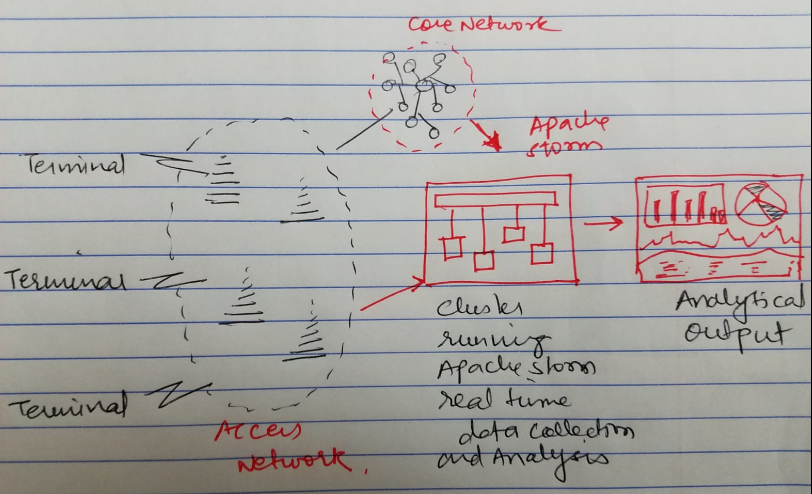 Core Network
Apache
storm
Terminal
Terminal
Terminal
Access
Network.
cluster
running
Apache storm
real time
data collection
and Analysis
Analytical
Output